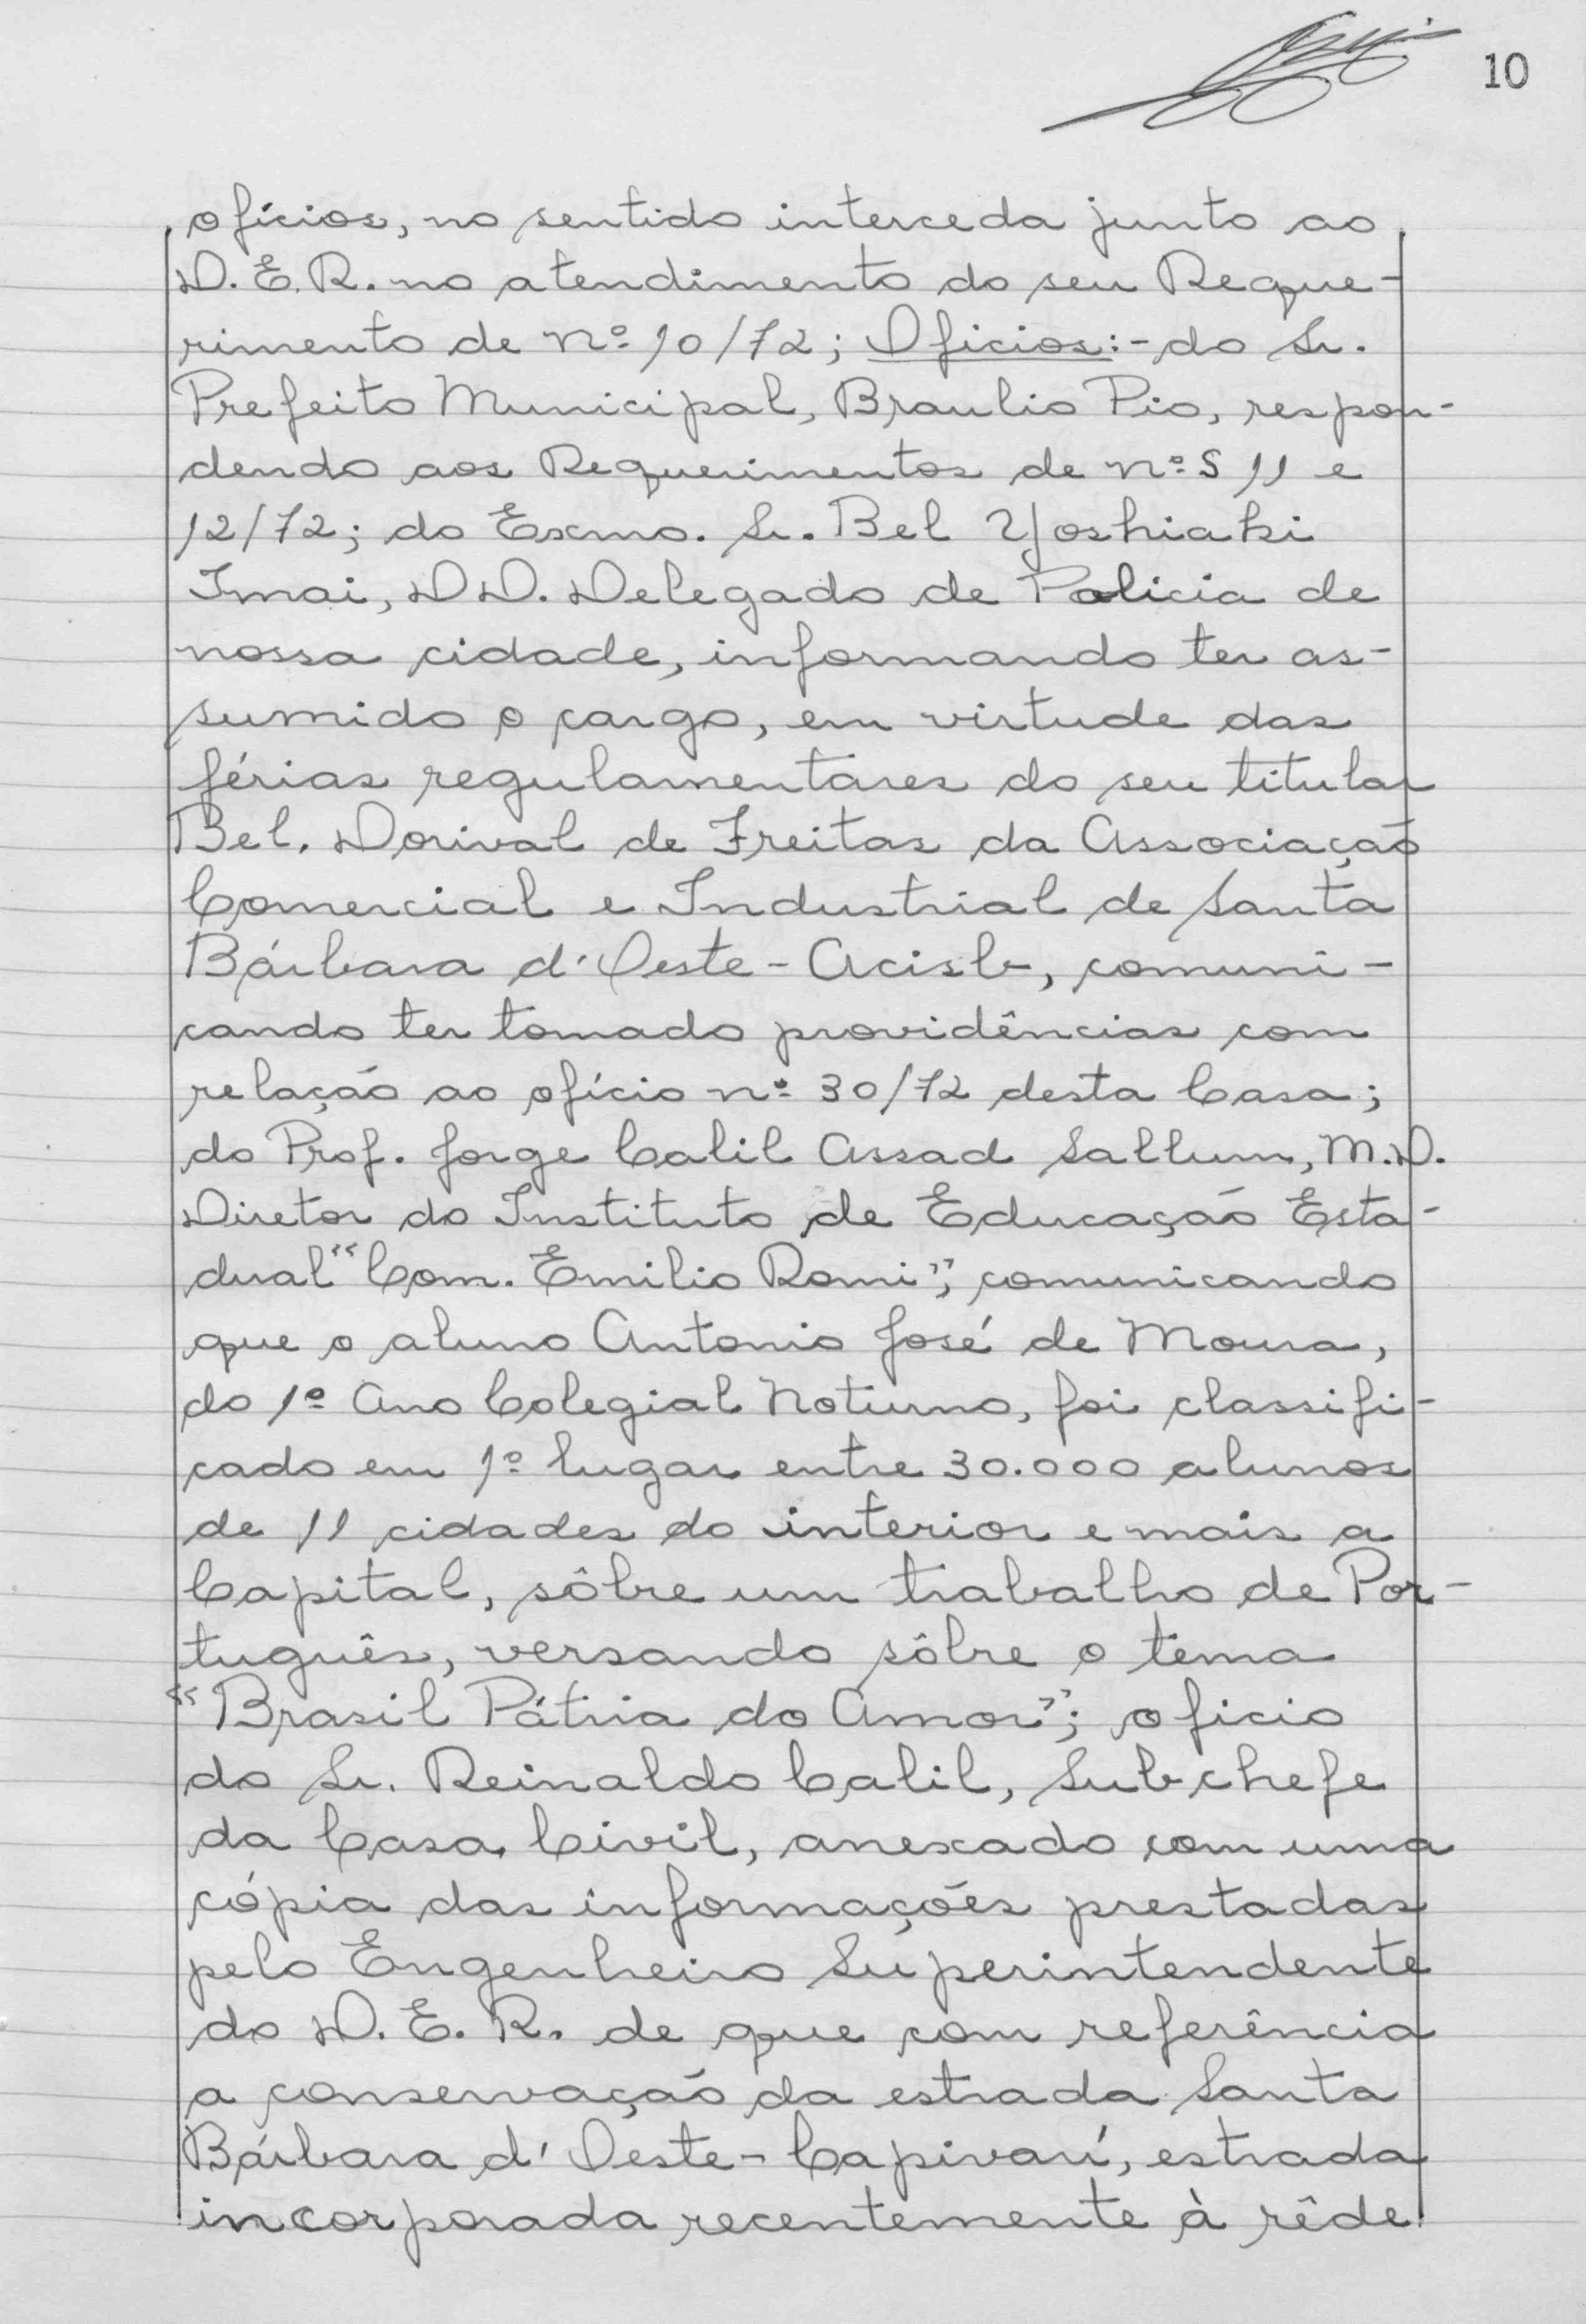 10
ofícios, no sentido interceda junto ao
D.E.R. no atendimento do seu Reque-
rimento de nº 10/72; Oficios:- do Sr.
Prefeito Municipal, Braulio Pio, respon-
dendo aos Requerimentos de nº.s 11 e
12/72; do Exmo. Sr. Bel Yoshiaki
Imai, DD. Delegado de Policia de
nossa cidade, informando ter as-
sumido o cargo, em virtude das
férias regulamentares do seu titular
Bel. Dorival de Freitas da Associação
Comercial e Industrial de Santa
Bárbara d'Oeste - Acisb, comuni-
cando ter tomado providências com
relação ao ofício nº 30/72 desta Casa;
do Prof. Jorge Calil Assad Sallum, M.D.
Diretor do Instituto de Educação Esta-
dual "Com. Emilio Romi", comunicando
que o aluno Antonio José de Moura,
do 1º Ano Colegial Noturno, foi classifi-
cado em 1º lugar entre 30.000 alunos
de 11 cidades do interior e mais a
Capital, sôbre um trabalho de Por-
tuguês, versando sôbre o tema
"Brasil Pátria do Amor"; oficio
do Sr. Reinaldo Calil, Subchefe
da Casa Civil, anexado com uma
cópia das informações prestadas
pelo Engenheiro Superintendente
do D.E.R. de que com referência
a conservação da estrada Santa
Bárbara d'Oeste - Capivarí, estrada
incorporada recentemente à rêde